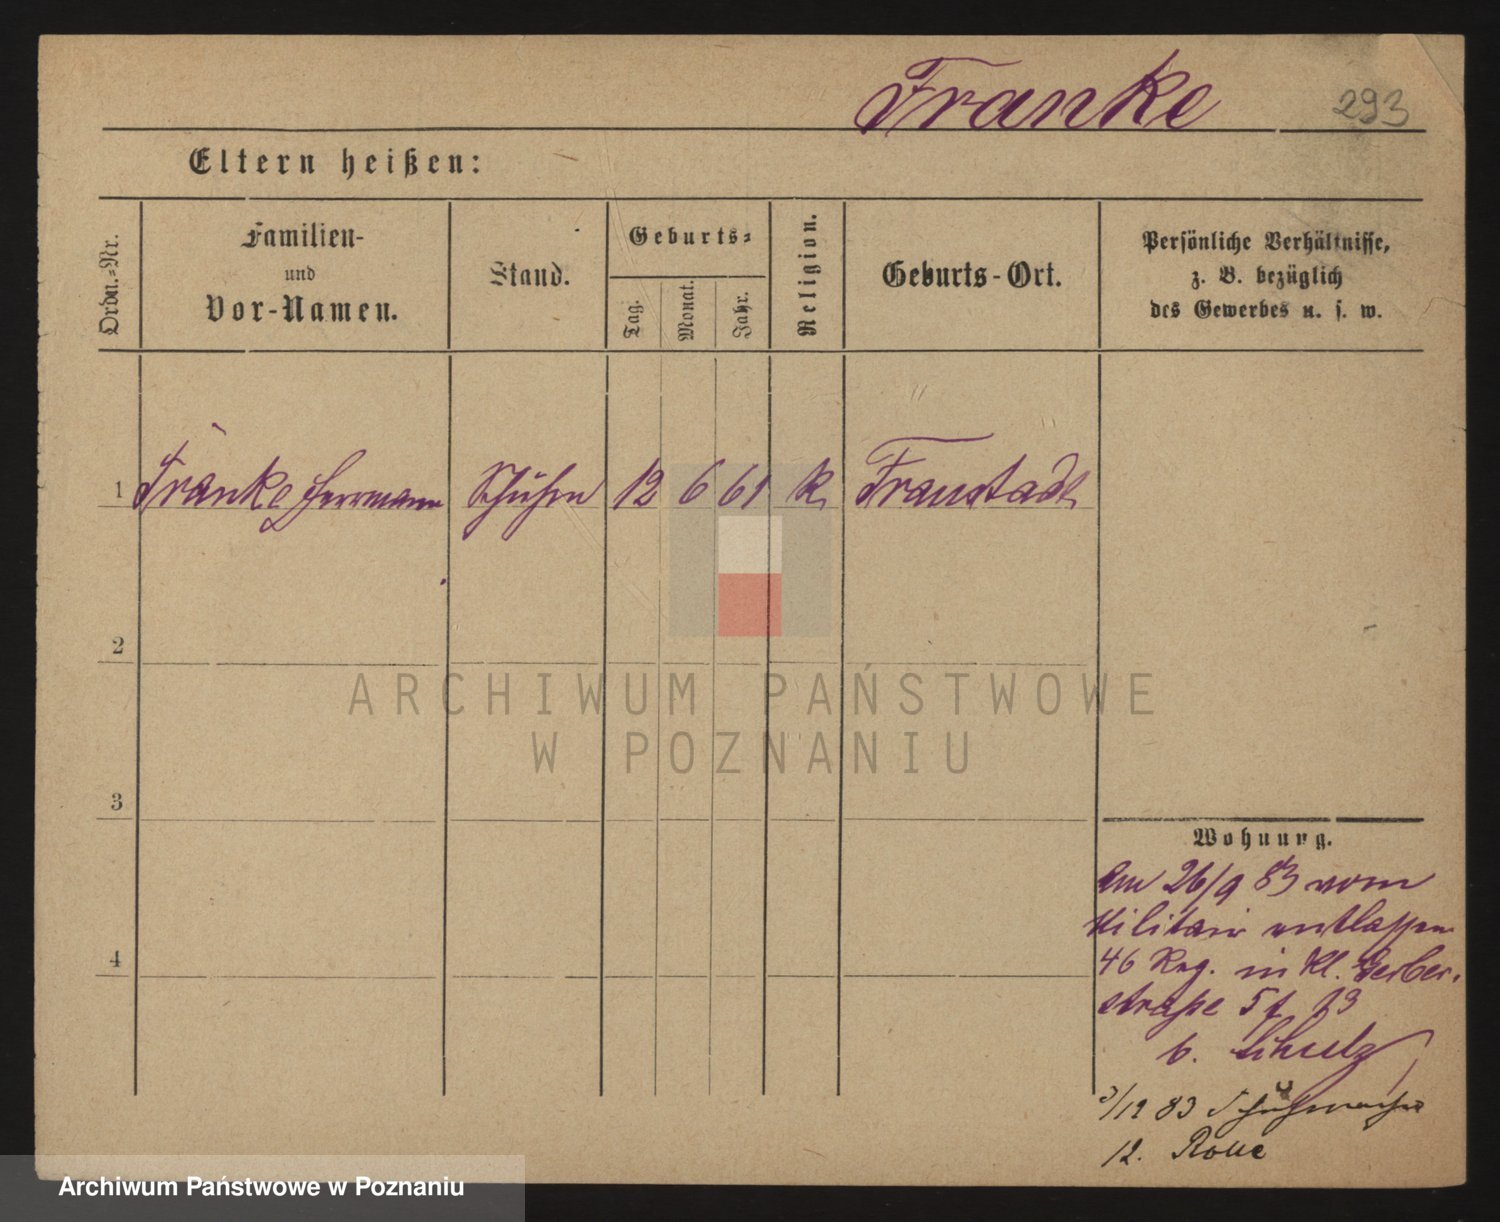 Franke
293
Eltern heißen:
Ordn.=Nr.
Familien-
und
Vor-Namen.
Stand.
Geburts=
Tag.
Monat.
Jahr.
Religion.
Geburts-Ort.
Persönliche Verhältnisse,
z. B. bezüglich
des Gewerbes u. s. w.
1 Franke Herrmann 12 6 61 k. Fraustadt
2
3
4
Wohnung.
Am 26/9 83 vom
Militair entlassen
46 Reg. in Kl. Gerber-
straße 5
b. Schulz
3/12 83 Schuhmacher
12.
ARCHIWUM PAŃSTWOWE
W POZNANIU
Archiwum Państwowe w Poznaniu